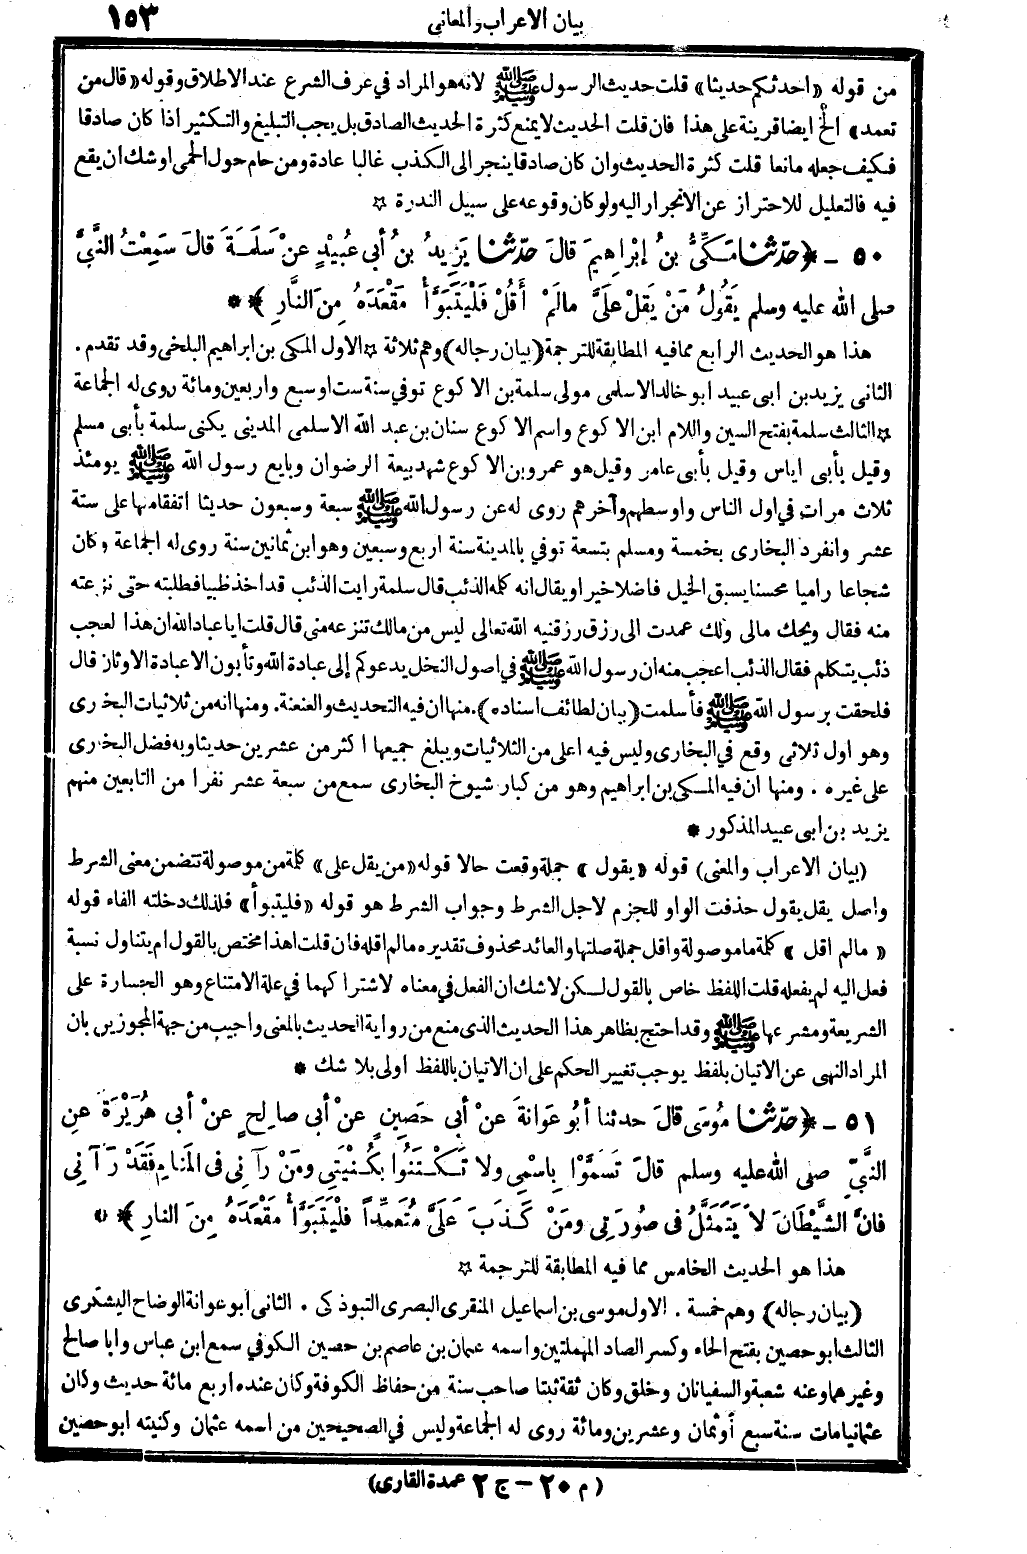 بيان الاعراب والمعاني ١٥٣
من قوله «احدثكم حديثا» قلت حديث الرسول ﷺ لانه هو المراد في عرف الشرع عند الاطلاق وقوله «قال من
تعمد» الخ ايضا قرينة على هذا فان قلت الحديث لا يمنع كثرة الحديث الصادق بل يجب التبليغ والتكثير اذا كان صادقا
فكيف جعله مانعا قلت كثرة الحديث وان كان صادقا ينجر الى الكذب غالبا عادة ومن حام حول الحمى اوشك ان يقع
فيه فالتعليل للاحتراز عن الانجرار اليه ولو كان وقوعه على سبيل الندرة ☆
٥٠ - ﴿حدّثنا مَكِّيُّ بنُ إبْراهِيمَ قالَ حدّثنا يَزِيدُ بنُ أبي عُبيْدٍ عنْ سَلَمَةَ قالَ سَمِعْتُ النَّبيَّ
صلى الله عليه وسلم يَقُولُ مَنْ يَقلْ عَلَيَّ مالَمْ أَقُلْ فَلْيَتَبَوَّأْ مَقْعَدَهُ مِنَ النَّارِ﴾ *
هذا هو الحديث الرابع مما فيه المطابقة للترجمة (بيان رجاله) وهم ثلاثة ☆ الاول المكى بن ابراهيم البلخى وقد تقدم .
الثانى يزيد بن ابى عبيد ابو خالد الاسلمى مولى سلمة بن الاكوع توفي سنة ست او سبع واربعين ومائة روى له الجماعة
☆ الثالث سلمة بفتح السين واللام ابن الاكوع واسم الاكوع سنان بن عبد الله الاسلمى المدينى يكنى سلمة بأبى مسلم
وقيل بأبى اياس وقيل بأبى عامر وقيل هو عمرو بن الاكوع شهد بيعة الرضوان وبايع رسول الله ﷺ يومئذ
ثلاث مرات في اول الناس واوسطهم وآخرهم روى له عن رسول الله ﷺ سبعة وسبعون حديثا اتفقا منها على ستة
عشر وانفرد البخارى بخمسة ومسلم بتسعة توفي بالمدينة سنة اربع وسبعين وهو ابن ثمانين سنة روى له الجماعة وكان
شجاعا راميا محسنا يسبق الخيل فاضلا خيرا ويقال انه كلمه الذئب قال سلمة رايت الذئب قد اخذ ظبيا فطلبته حتى نزعته
منه فقال ويحك مالى ولك عمدت الى رزق رزقنيه الله تعالى ليس من مالك تنزعه منى قال قلت ايا عباد الله ان هذا لعجب
ذئب يتكلم فقال الذئب اعجب منه ان رسول الله ﷺ في اصول النخل يدعوكم إلى عبادة الله وتأبون الا عبادة الاوثان قال
فلحقت برسول الله ﷺ فأسلمت (بيان لطائف اسناده). منها ان فيه التحديث والعنعنة. ومنها انه من ثلاثيات البخارى
وهو اول ثلاثى وقع في البخارى وليس فيه اعلى من الثلاثيات ويبلغ جميعها اكثر من عشرين حديثا وبه فضل البخارى
على غيره . ومنها ان فيه المكى بن ابراهيم وهو من كبار شيوخ البخارى سمع من سبعة عشر نفرا من التابعين منهم
يزيد بن ابى عبيد المذكور *
(بيان الاعراب والمعنى) قوله «يقول» جملة وقعت حالا قوله «من يقل على» كلمة من موصولة تتضمن معنى الشرط
واصل يقل يقول حذفت الواو للجزم لاجل الشرط وجواب الشرط هو قوله «فليتبوأ» فلذلك دخلته الفاء قوله
«مالم اقل» كلمة ما موصولة واقل جملة صلتها والعائد محذوف تقديره مالم اقله فان قلت اهذا مختص بالقول ام يتناول نسبة
فعل اليه لم يفعله قلت اللفظ خاص بالقول لكن لا شك ان الفعل في معناه لاشتراكهما في علة الامتناع وهو الجسارة على
الشريعة ومشرعها ﷺ وقد احتج بظاهر هذا الحديث الذى منع من رواية الحديث بالمعنى واجيب من جهة المجوزين بان
المراد النهى عن الاتيان بلفظ يوجب تغيير الحكم على ان الاتيان باللفظ اولى بلا شك *
٥١ - ﴿حدّثنا مُوسَى قالَ حدثنا أبُو عَوانةَ عنْ أبي حَصِينٍ عنْ أبي صالِحٍ عنْ أبي هُرَيْرَةَ عنِ
النَّبيِّ صلى الله عليه وسلم قالَ تَسَمَّوْا بِاسْمِي ولا تَكْتَنُوا بِكُنْيَتِي ومَنْ رَآنِي في المَنامِ فَقَدْ رَآنِي
فانَّ الشَّيْطَانَ لاَ يَتَمَثَّلُ في صُورَتِي ومَنْ كَذَبَ عَلَيَّ مُتَعمِّداً فلْيَتَبَوَّأْ مَقْعَدَهُ مِنَ النارِ﴾ *
هذا هو الحديث الخامس مما فيه المطابقة للترجمة ☆
(بيان رجاله) وهم خمسة . الاول موسى بن اسماعيل المنقرى البصرى التبوذكى . الثانى ابو عوانة الوضاح اليشكرى
الثالث ابو حصين بفتح الحاء وكسر الصاد المهملتين واسمه عثمان بن عاصم بن حصين الكوفي سمع ابن عباس وابا صالح
وغيرهما وعنه شعبة والسفيانان وخلق وكان ثقة ثبتا صاحب سنة من حفاظ الكوفة وكان عنده اربع مائة حديث وكان
عثمانيا مات سنة سبع أو ثمان وعشرين ومائة روى له الجماعة وليس في الصحيحين من اسمه عثمان وكنيته ابو حصين
(م ٢٠ - ج ٢ عمدة القارى)